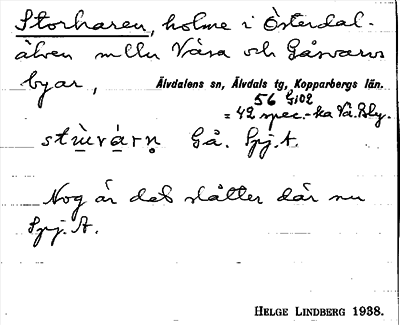 Storharen, holme i Österdal-
älven mellu Våsa och Gåsvarvs
byar, Älvdalens sn, Älvdals tg, Kopparbergs län.
56 Gi02
= 42 spec.-ka Vå. Bly.
stùvárn Gå. Spj. A.
Nog är det slåtter där nu
Spj. A.
HELGE LINDBERG 1938.